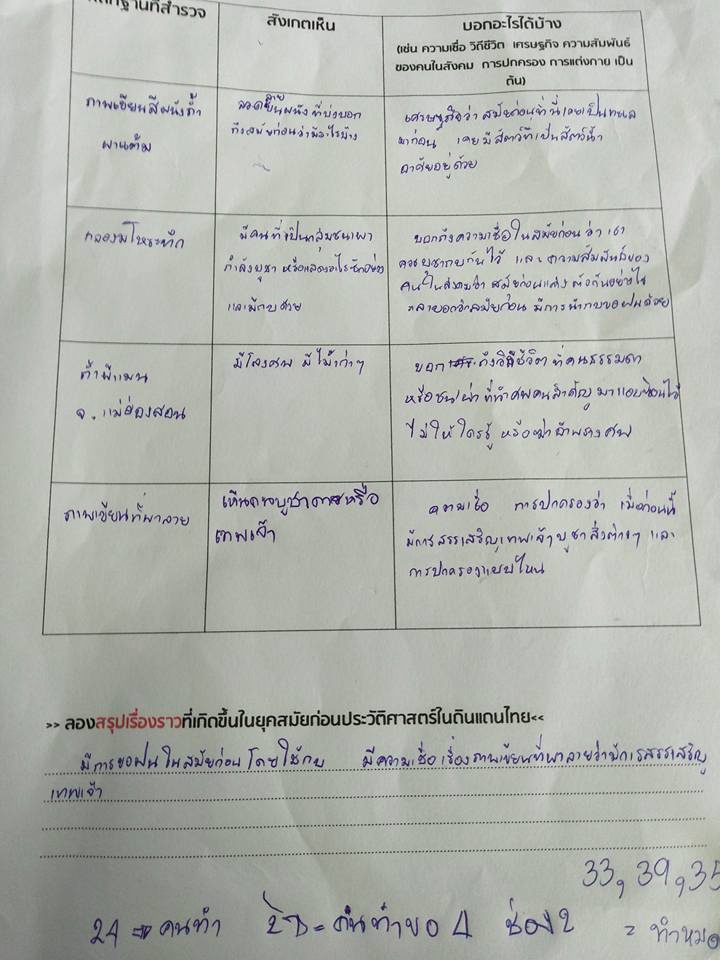 หลักฐานที่สำรวจ
สังเกตเห็น
บอกอะไรได้บ้าง
(เช่น ความเชื่อ วิถีชีวิต เศรษฐกิจ ความสัมพันธ์
ของคนในสังคม การปกครอง การแต่งกาย เป็น
ต้น)
ภาพเขียนสีผนังถ้ำ
ผาแต้ม
ผนังที่บ่งบอก
ถึงสมัยก่อนว่ามีอะไรบ้าง
ว่า สมัยก่อนที่นี่เคยเป็นทะเล
มาก่อน เคยมีสัตว์ที่เป็นสัตว์น้ำ
อาศัยอยู่ด้วย
กลองมโหระทึก
มีคนที่เป็นกลุ่มชนเผ่า
กำลังบูชา หรือแสดงอะไรซักอย่าง
และมีกบด้วย
บอกถึงความเชื่อในสมัยก่อนว่า เขา
บูชากบกันไว้ และ ความสัมพันธ์ของ
คนในสังคมว่า สมัยก่อนแต่งตัวกันอย่างไร
สมัยก่อน มีการนำกบขอฝนด้วย
ถ้ำผีแมน
จ. แม่ฮ่องสอน
มีโลงศพ มีไม้เก่าๆ
บอก ถึงวิถีชีวิต ที่คนธรรมดา
หรือชนเผ่า ที่นำศพคนสำคัญ มาแอบซ่อนไว้
ไม่ให้ใครรู้ หรือ ศพ
ภาพเขียนที่ผาลาย
เห็นคนบูชา หรือ
เทพเจ้า
ความเชื่อ การปกครองว่า เมื่อก่อนนี้
มีการสรรเสริญเทพเจ้า บูชาสิ่งต่างๆ และ
การปกครองแบบไหน
>> ลองสรุปเรื่องราวที่เกิดขึ้นในยุคสมัยก่อนประวัติศาสตร์ในดินแดนไทย<<
มีการขอฝนในสมัยก่อนโดยใช้กบ มีความเชื่อเรื่องภาพเขียนที่ผาลายว่า
เทพเจ้า
33, 39, 35
24 = คนทำ = 4 ช่อง 2 = ทำหมด